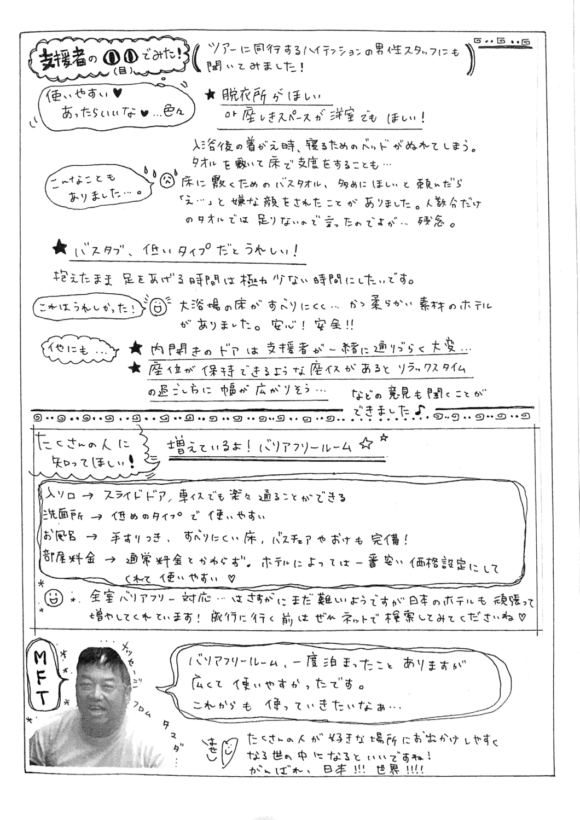 支援者の目でみた!
ツアーに同行するハイテンションの男性スタッフにも
聞いてみました!
使いやすい♥
あったらいいな♥…色々
★ 脱衣所がほしい
or 座しきスペースが洋室でもほしい!
入浴後の着がえ時、寝るためのベッドがぬれてしまう。
タオルを敷いて床で支度をすることも…
こんなことも
ありました…。
床に敷くためのバスタオル、多めにほしいと頼んだら
「え…」と嫌な顔をされたことがありました。人数分だけ
のタオルでは足りないので言ったのですが… 残念。
★ バスタブ、低いタイプだとうれしい!
抱えたまま足をあげる時間は極力少ない時間にしたいです。
これはうれしかった!
大浴場の床がすべりにくく… かつ柔らかい素材のホテル
がありました。安心!安全!!
他にも…
★ 内開きのドアは支援者が一緒に通りづらく大変…
★ 座位が保持できるような座イスがあるとリラックスタイム
の過ごし方に幅が広がりそう…
などの意見も聞くことが
できました♪
たくさんの人に
知ってほしい!
増えているよ!バリアフリールーム☆☆
入り口 → スライドドア,車イスでも楽々通ることができる
洗面所 → 低めのタイプで使いやすい
お風呂 → 手すりつき、すべりにくい床,バスチェアやおけも完備!
部屋料金 → 通常料金とかわらず。ホテルによっては一番安い価格設定にして
くれて使いやすい♡
全室バリアフリー対応…はさすがにまだ難しいようですが日本のホテルも頑張って
増やしてくれています!旅行に行く前はぜひネットで検索してみてくださいね♡
MFT
メッセージ
フロム
タスダ…
バリアフリールーム、一度泊まったことありますが
広くて使いやすかったです。
これからも使っていきたいなぁ…
はせ
たくさんの人が好きな場所にお出かけしやすく
なる世の中になるといいですね!
がんばれ、日本!!!世界!!!!